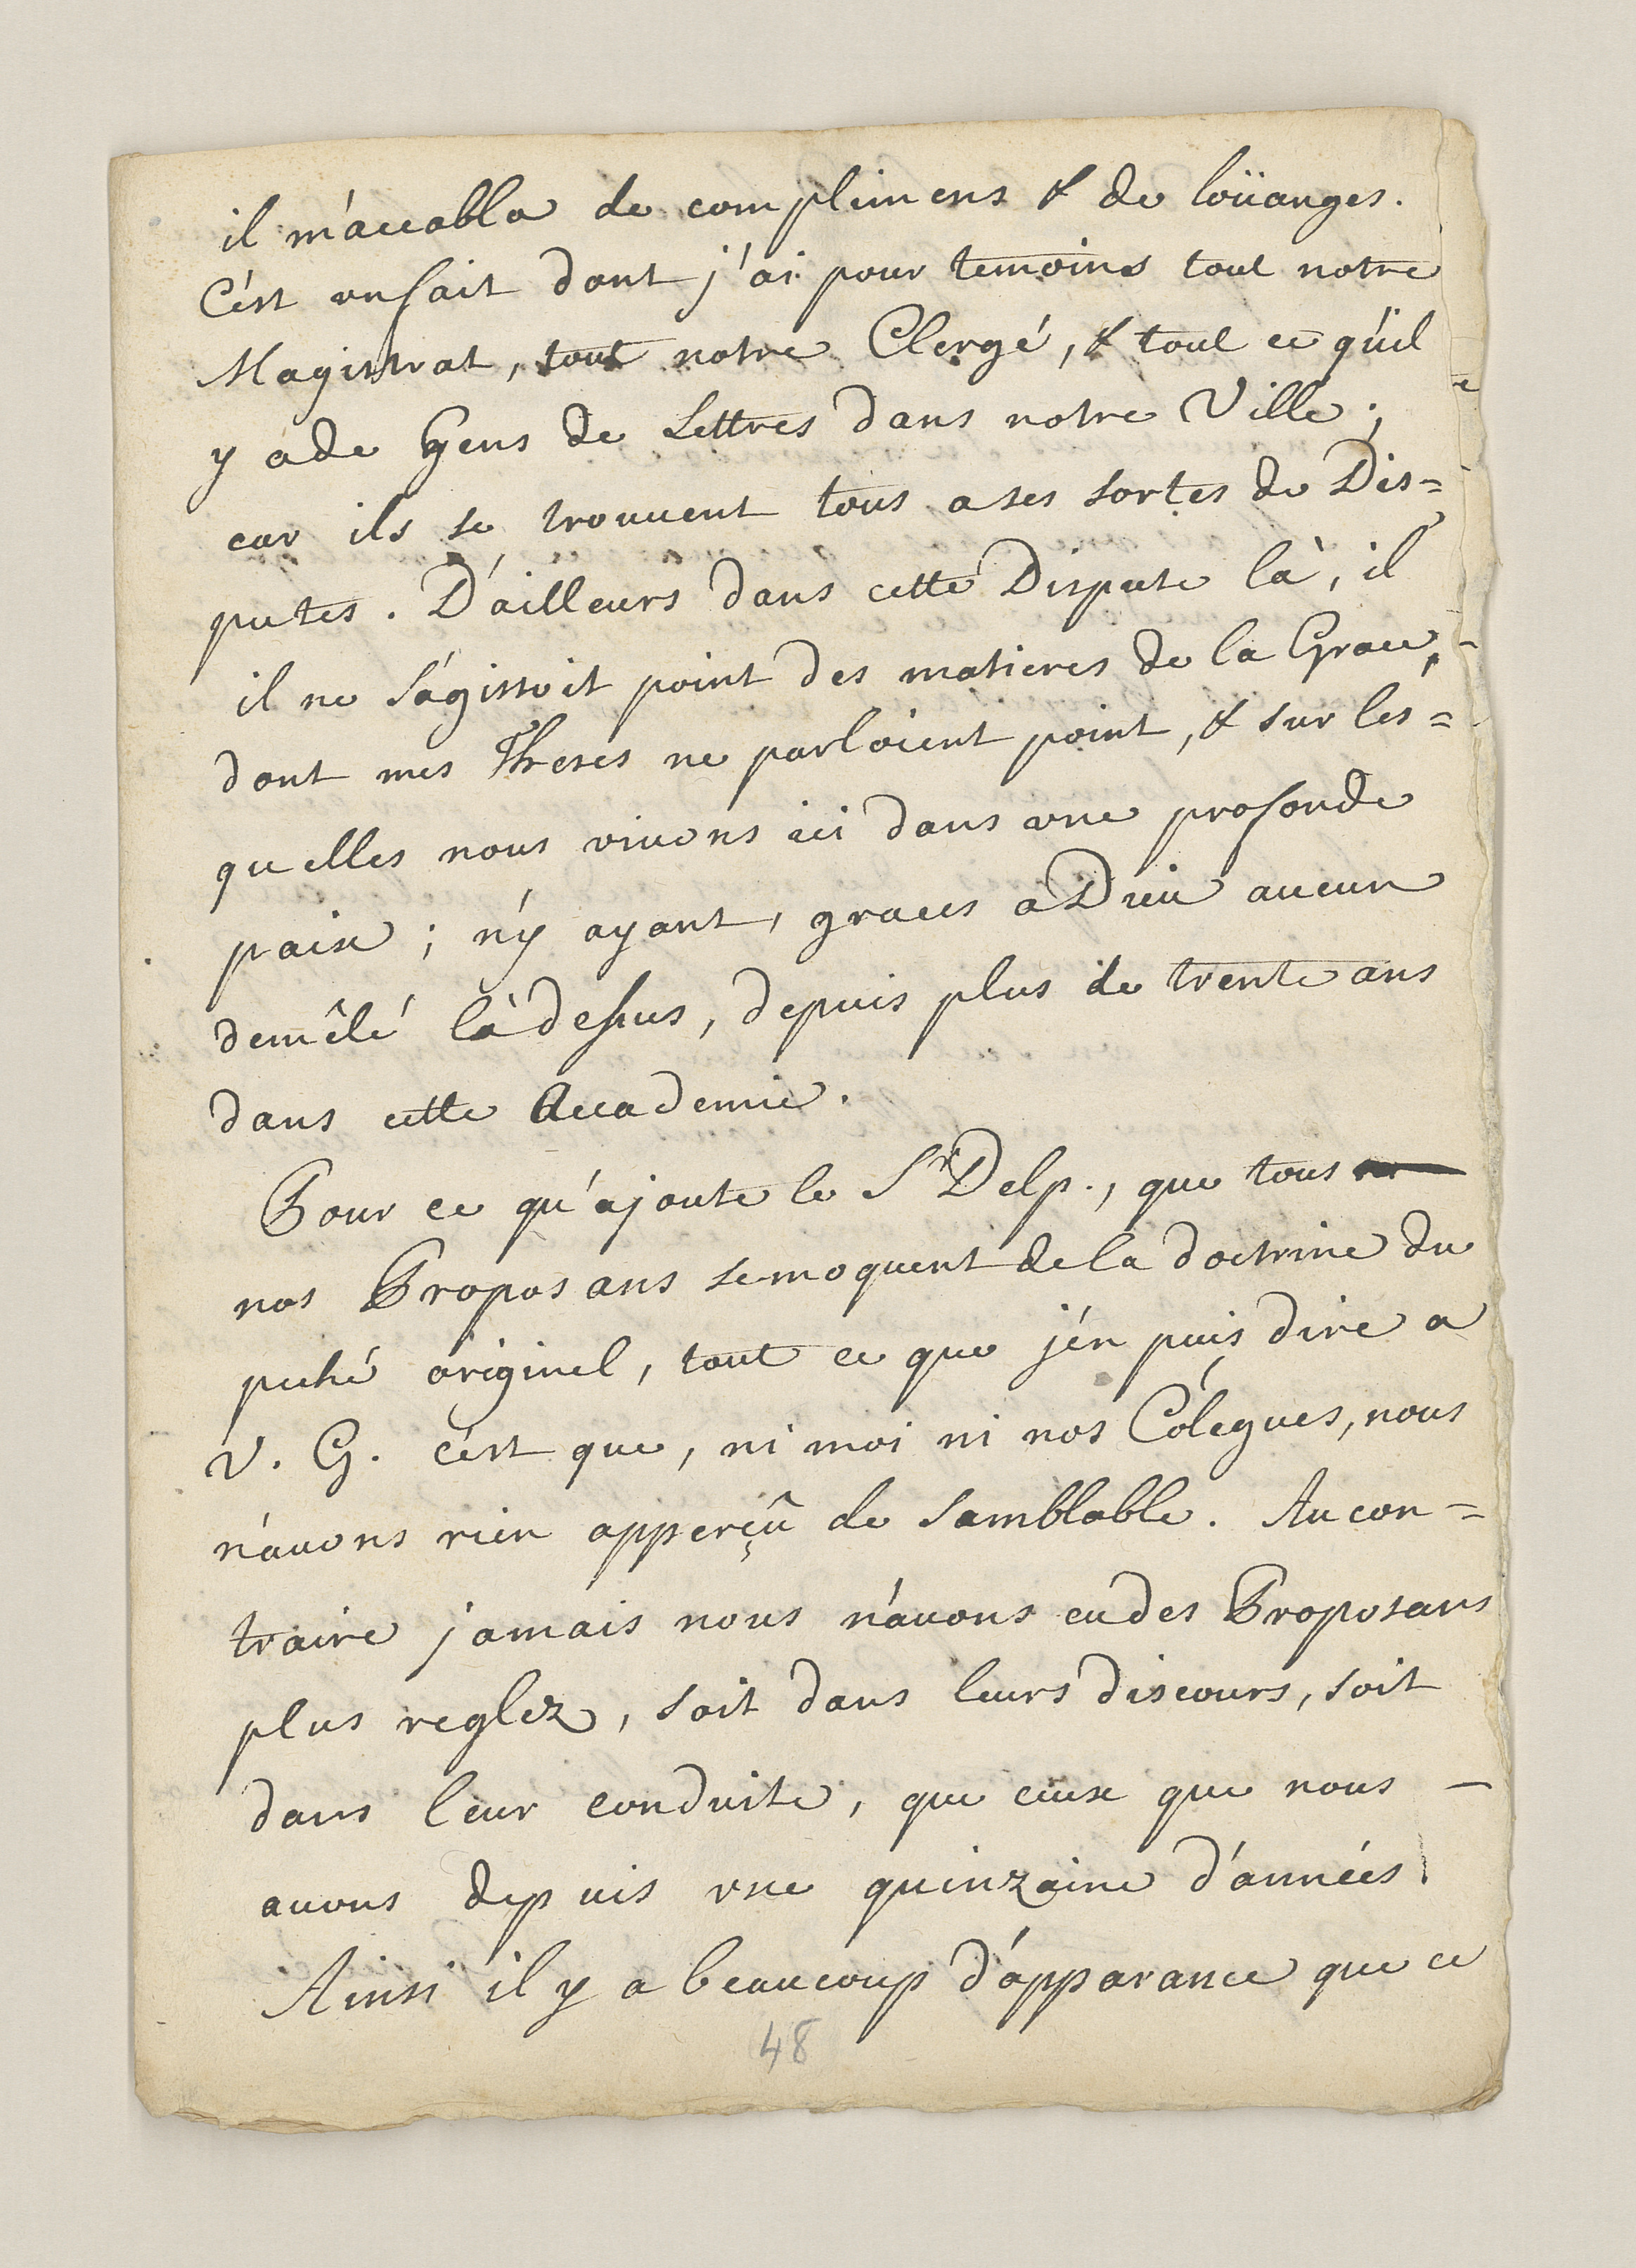 il m'accabla de complimens & de loüanges.
C'est un fait dont j'ai pour temoins tout notre
Magistrat, tout notre Clergé, & tout ce qu'il
y a de Gens de Lettres dans notre Ville ;
car ils se trouuent tous a ses sortes de Dis=
putes. D'ailleurs dans cette Dispute là, il
il ne s'agissoit point des matieres de la Grace,
dont mes Theses ne parloient point, & sur les=
quelles nous viuons ici dans une profonde
paix ; n'y ayant, graces a Dieu aucun
demêlé là dessus, depuis plus de trente ans
dans cette Accademie.
Pour ce qu'ajoute le Sr Delp., que tous
nos Proposans se moquent de la doctrine du
peché originel, tout ce que j'en puis dire a
V. G. c'est que, ni moi ni nos Colegues, nous
n'auons rien apperçû de samblable. Au con=
traire jamais nous n'auons eu des Proposans
plus reglez, soit dans leurs discours, soit
dans leur conduite, que ceux que nous -
auons depuis vne quinzaine d'années.
Ainsi il y a beaucoup d'apparance que ce
48